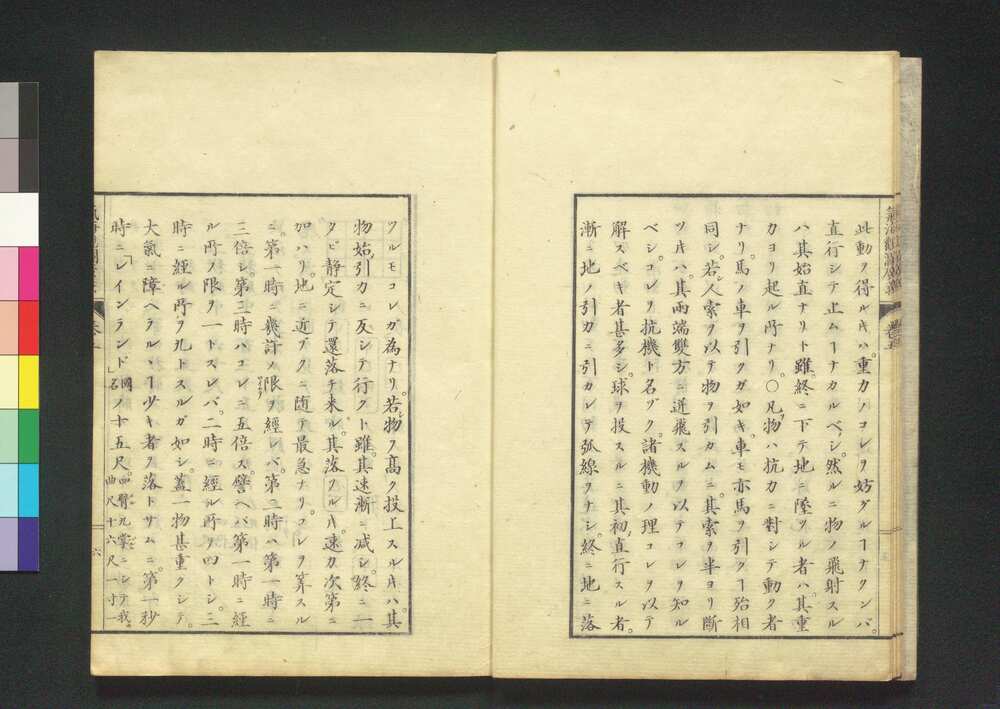 此動ヲ得ルキハ。重力ノコレヲ妨グルヿナクンバ。
直行シテ止ムヿナカルベシ。然ルニ物ノ飛射スル
ハ其始直ナリト雖。終ニ下テ地ニ墜ツル者ハ。其重
カヨリ起ル所ナリ。○凡物ハ抗力ニ對シテ動ク者
ナリ。馬ノ車ヲ引クガ如キ。車モ亦馬ヲ引クヿ殆相
同シ。若人索ヲ以テ物ヲ引カムニ。其索ヲ半ヨリ斷
ツキハ。其兩端雙方ニ迸飛スルノ以テコレヲ知ル
ベシ。コレヲ抗機ト名ヅク。諸機動ノ理コレヲ以テ
解スベキ者甚多シ。球ヲ投スルニ其初直行スル者。
漸ニ地ノ引力ニ引カレテ弧線ヲナシ。終ニ地ニ落
ツルモコレガ為ナリ。若物ヲ髙ク投上スルキハ。其
物始引力ニ反シテ行クト雖。其速漸ニ减シ。終ニ一
タビ静定シテ還落チ来ル。其落ツルキ。速力次第ニ
加ハリ。地ニ近ヅクニ随テ最急ナリ。コレヲ算スル
ニ。第一時ニ幾許ノ限ヲ經レバ。第二時ハ第一時ニ
三倍シ。第三時ハコレニ五倍ス。譬ヘバ第一時ニ經
ル所ヲ限ヲ一トスレバ。二時ニ經ル所ヲ四トシ。三
時ニ經ル所ヲ九トスルガ如シ。蓋一物甚重クシテ。
大氣ニ障ヘラルヽヿ少キ者ヲ落トサムニ。第一秒
時ニ「レインランド」國名ノ十五尺。四臂九掌ニシテ我曲尺十六尺一寸一
六